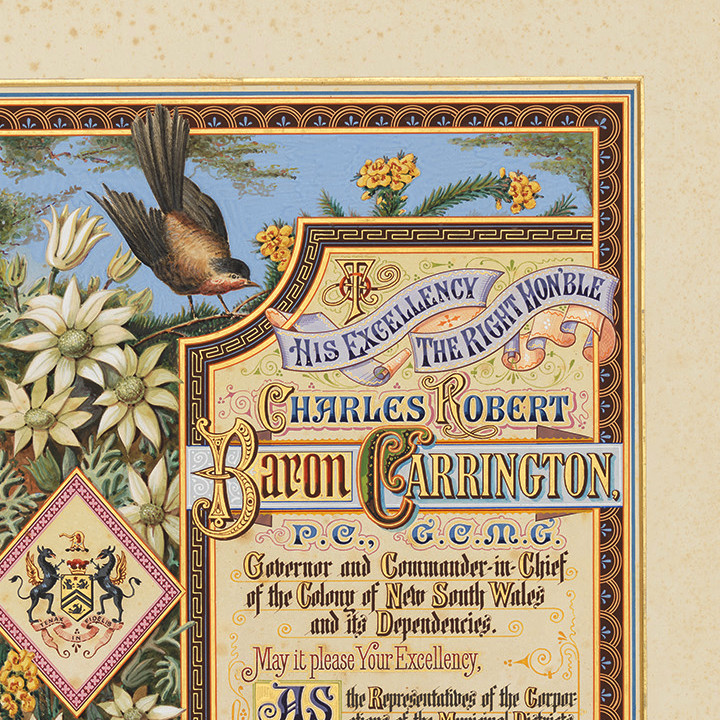 To
HIS EXCELLENCY
THE RIGHT HON'BLE
CHARLES ROBERT
Baron CARRINGTON,
P.C., G.C.M.G.
Governor and Commander-in-Chief
of the Colony of New South Wales
and its Dependencies.
May it please Your Excellency,
AS the Representatives of the Corpor-
ations of the Municipal Districts
TENAX IN FIDELIS